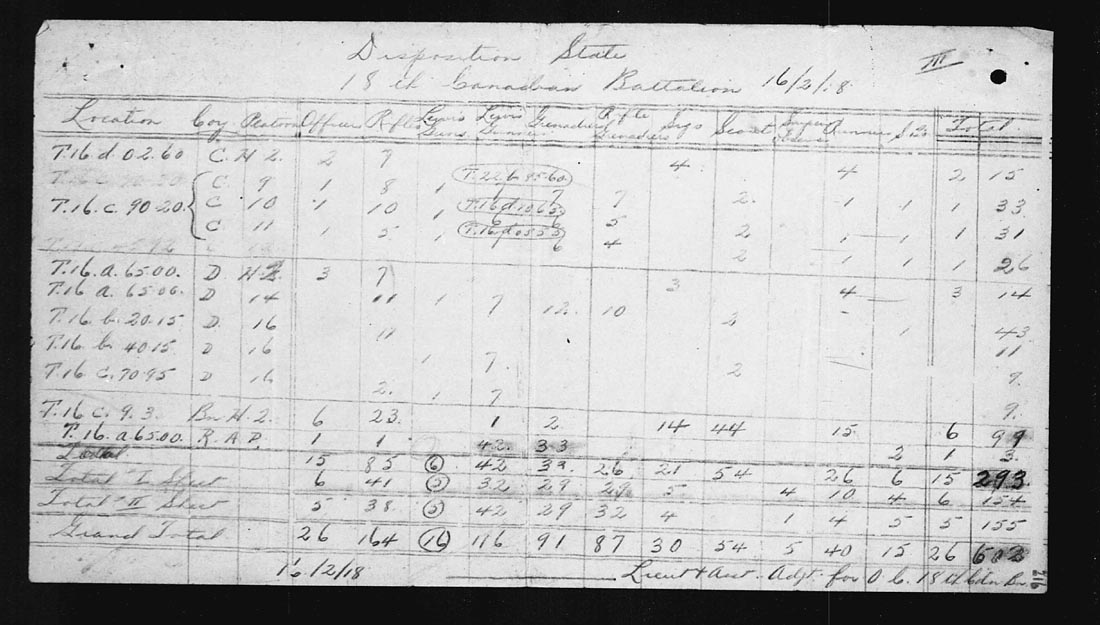 Disposition State III
18th Canadian Battalion 16/2/18
Location Coy. Platoon Officers Rifles Lewis Guns Lewis Gunners Grenadiers Rifle Grenadiers Sigs Scout Runners S.B. Total
T.16.d.02.60 C. H.2. 2 7 4 4 2 15
C. 9 1 8 1 T.22.b.95.60 7 7 2. 1 1 1 33
T.16.c.90-20 C 10 1 10 1 5 2 1 1 1 31
C 11 1 5 1 6 4 2 1 1 1 26
T.16.a.65.00. D. H. 3 7 3 4 3 14
T.16 a. 65-00. D 14 11 1 7 12. 10 2 - 1 43
T.16 b. 20-15 D. 16 11 11
T.16 b. 40-15 D 16 1 7. 2 9.
T.16 C. 70-95 D 16 2. 1 7 9.
T.16 c. 9.3 Bn H.2. 6 23. 1 2. 14 44 15. 6 99
T.16.a.65.00. R.A.P. 1 1 2 1 3.
42. 33
Total 15 85 6 42 33. 26 21 54 26 6 15 293
Total I Sheet 6 41 5 32 29 29 5 4 10 4 6 154
Total II Sheet 5 38. 5 42 29 32 4 1 4 5 5 155
Grand Total 26 164 16 116 91 87 30 54 5 40 15 26 602
16/2/18 Lieut & Asst. Adjt. for O.C. 18th Cdn Bn.